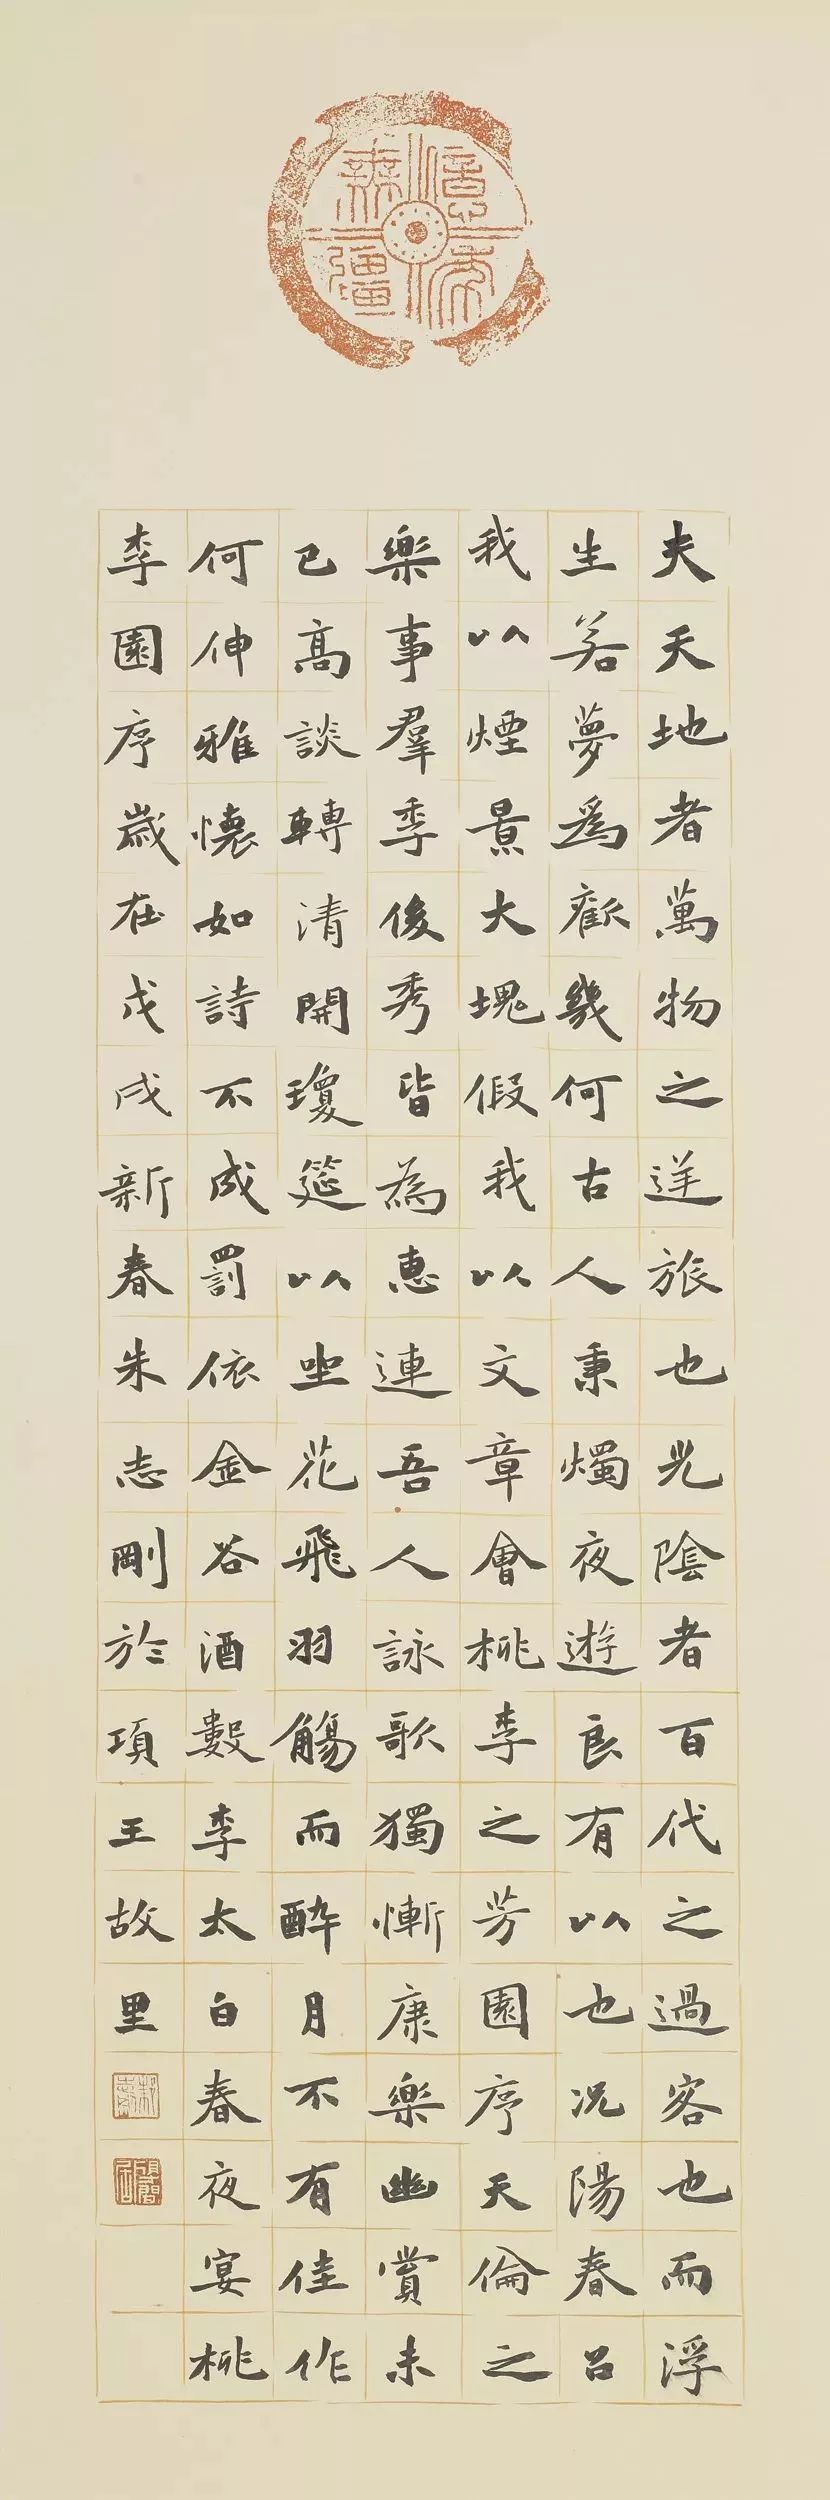 億年無疆
夫天地者萬物之逆旅也光陰者百代之過客也而浮
生若夢爲歡幾何古人秉燭夜遊良有以也况陽春召
我以煙景大塊假我以文章會桃李之芳園序天倫之
樂事羣季俊秀皆為惠連吾人詠歌獨慚康樂幽賞未
已高談轉清開瓊筵以坐花飛羽觴而醉月不有佳作
何伸雅懷如詩不成罰依金谷酒數李太白春夜宴桃
李園序歲在戊戌新春朱志剛於項王故里